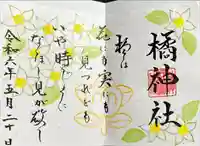 橘神社
橘は
花にも実にも
見つれども
いや時じくに
なほし見が欲し
令和六年五月二十日